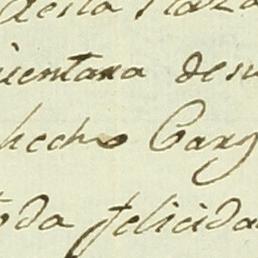 desta Plaza
uentara de su
hecho Carg
toda felicida